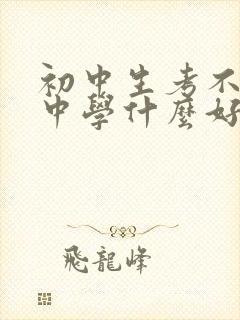 初中生考不
中學什麼好
飛龍峰